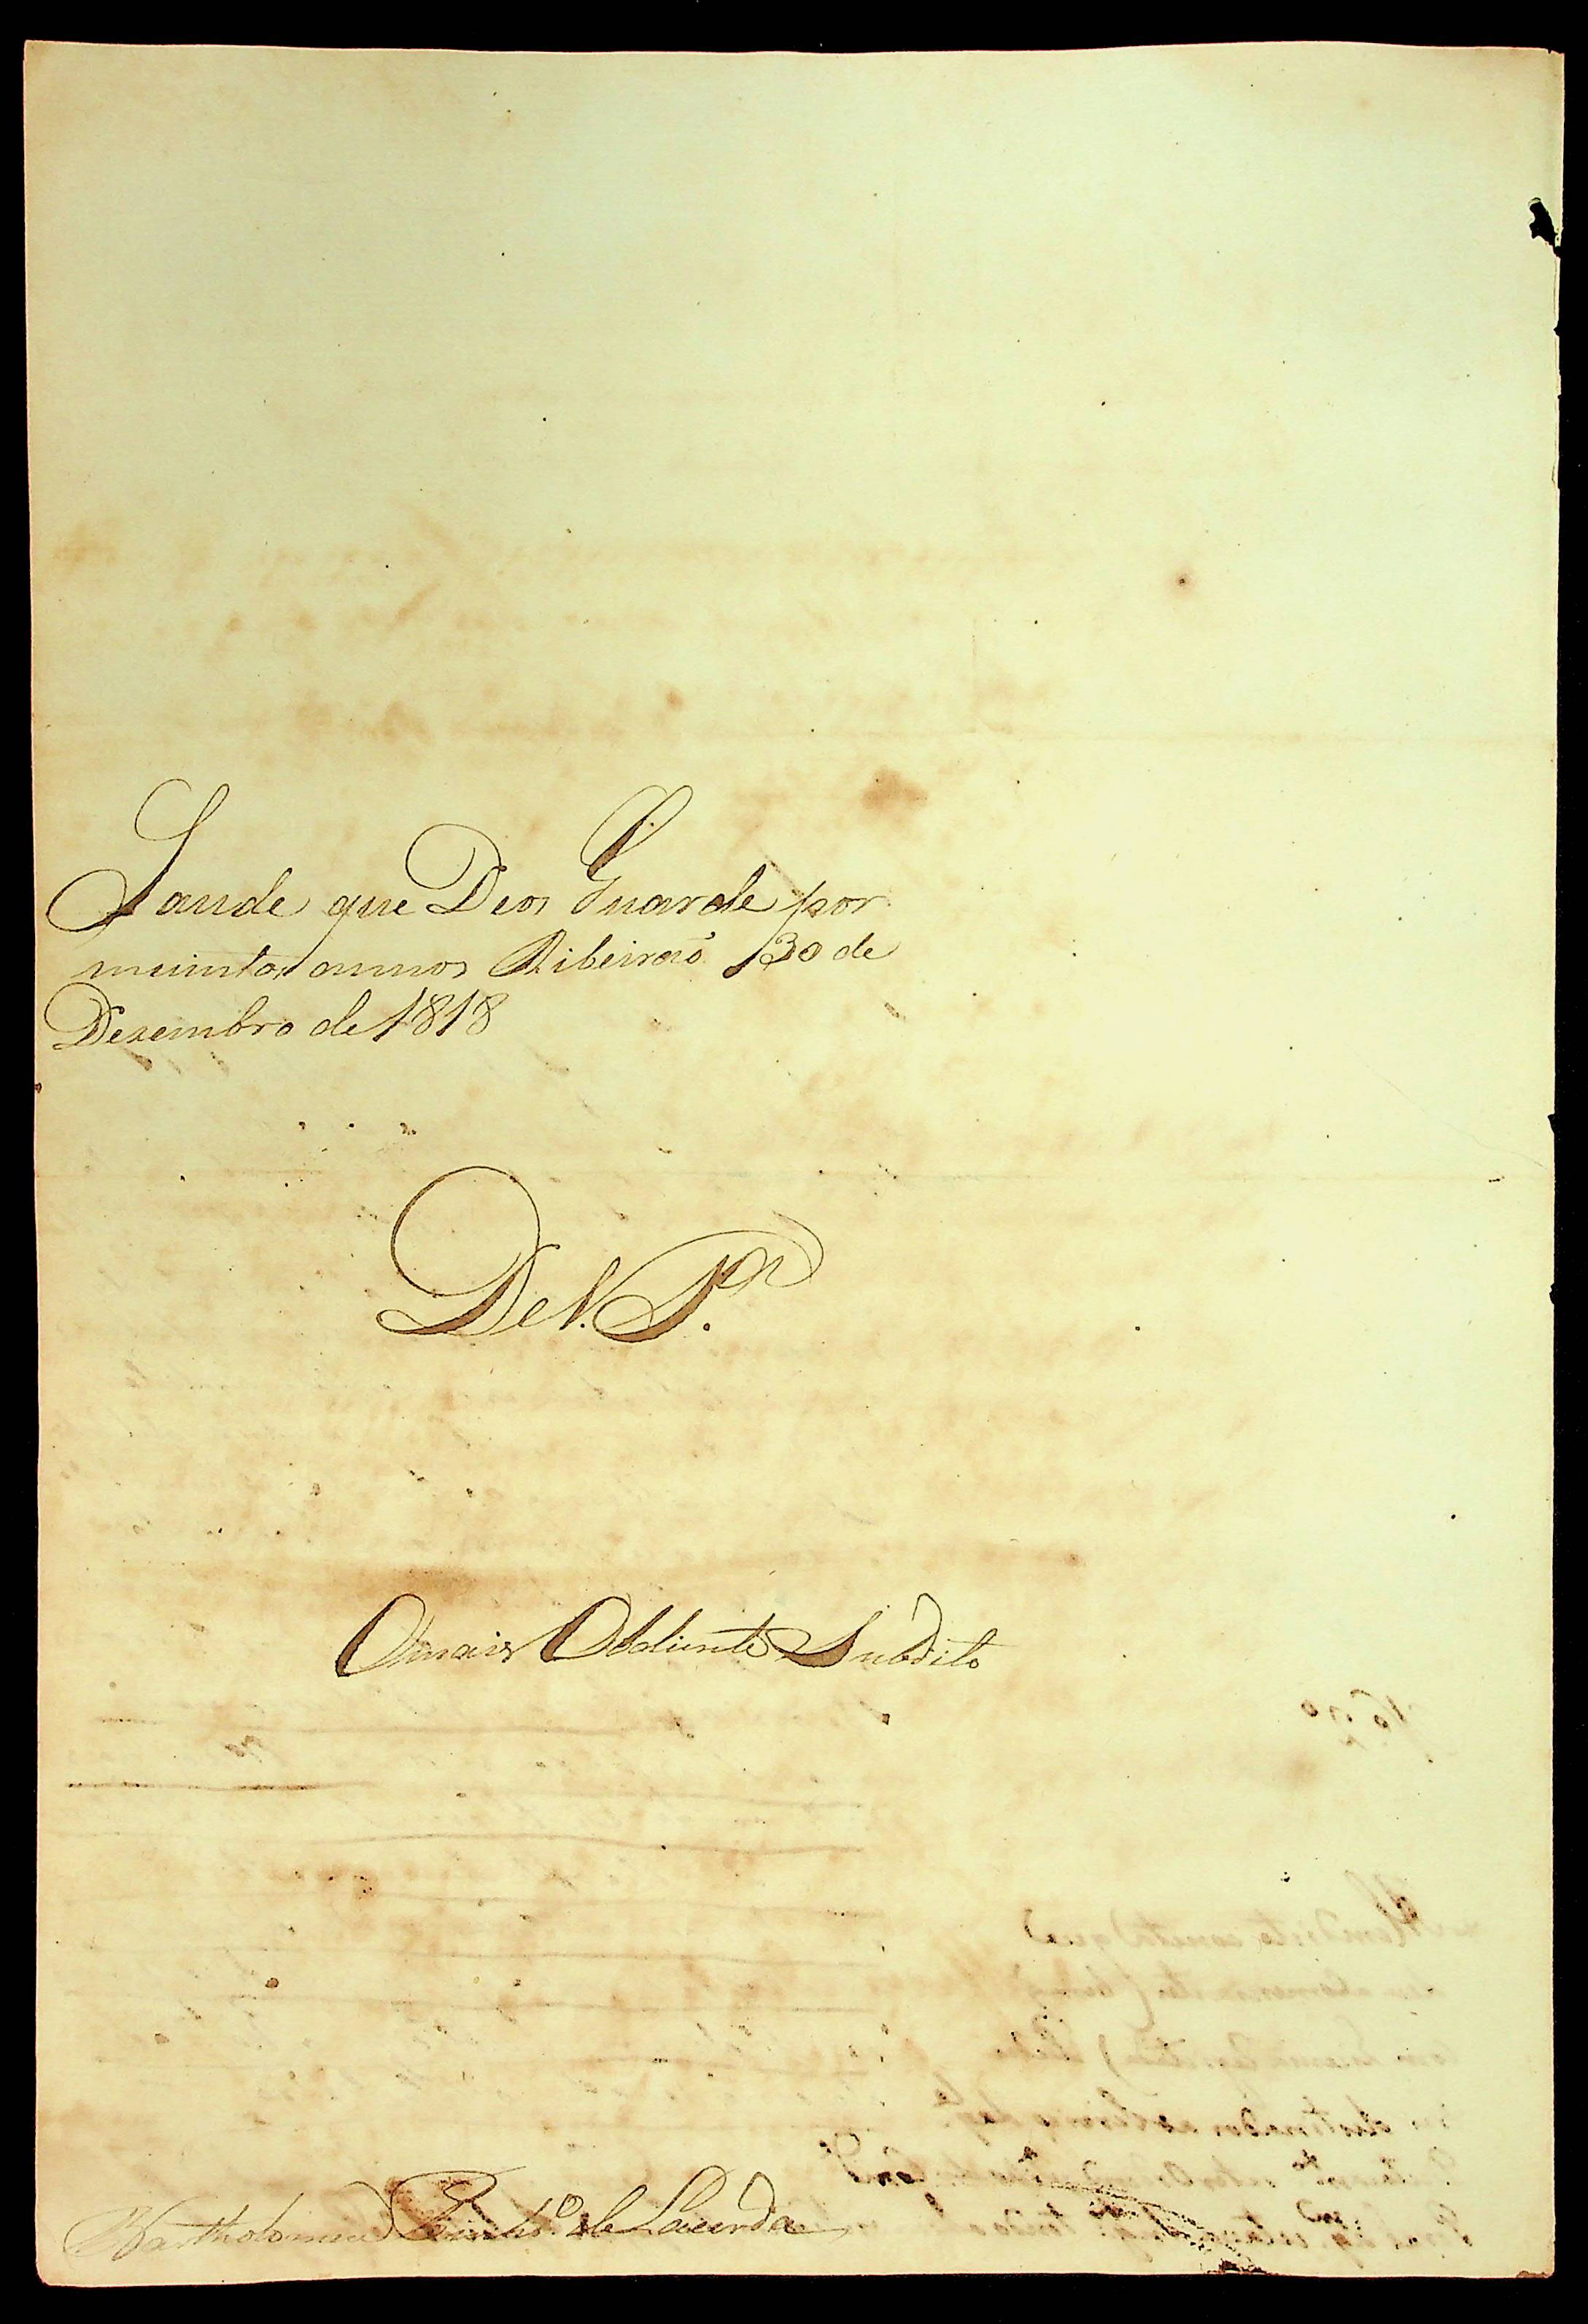 Saude que Deos Guarde por
muintos annos Ribeiraõ 30 de
Dezembro de 1818
De V. S.ª
O mais Obediente Subdito
Bartholomeu Pinh.º de Lacerda